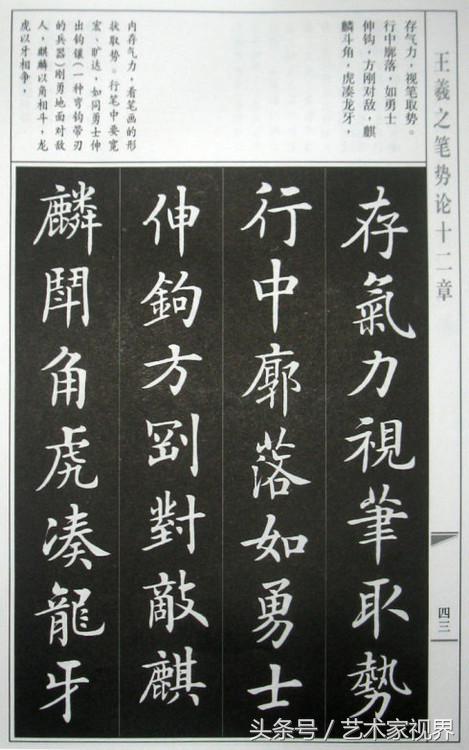 王羲之笔势论十二章
存气力，视笔取势。
行中廓落，如勇士
伸钩，方刚对敌，麒
麟斗角，虎凑龙牙，
内存气力，看笔画的形
状取势。行笔中要宽
宏、旷达，如同勇士伸
出钩镶(一种弯钩带刃
的兵器)刚勇地面对敌
人，麒麟以角相斗，龙
虎以牙相争，
存氣力視筆取勢
行中廓落如勇士
伸鉤方剛對敵麒
麟鬪角虎凑龍牙
四三
头条号/艺术家视界